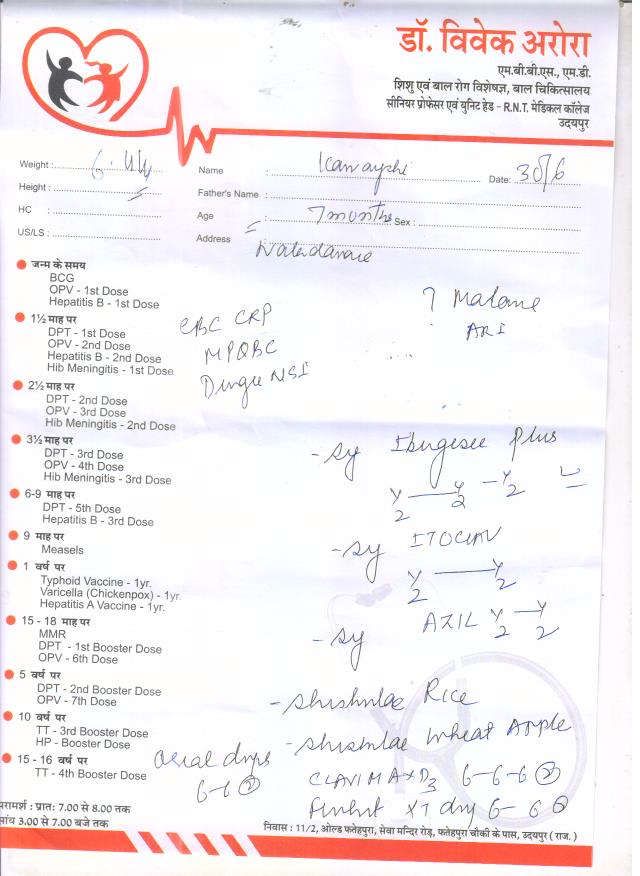 डॉ. विवेक अरोरा
एम.बी.बी.एस., एम.डी.
शिशु एवं बाल रोग विशेषज्ञ, बाल चिकित्सालय
सीनियर प्रोफेसर एवं युनिट हेड - R.N.T. मेडिकल कॉलेज
उदयपुर
Weight :
Name :
Date: 30/6
Height :
Father's Name :
HC :
Age : 7 months Sex :
US/LS :
Address
जन्म के समय
BCG
OPV - 1st Dose
Hepatitis B - 1st Dose
ARI
1½ माह पर
DPT - 1st Dose
OPV - 2nd Dose
Hepatitis B - 2nd Dose
Hib Meningitis - 1st Dose
CBC CRP
MPQBC
NSI
2½ माह पर
DPT - 2nd Dose
OPV - 3rd Dose
Hib Meningitis - 2nd Dose
3½ माह पर
DPT - 3rd Dose
OPV - 4th Dose
Hib Meningitis - 3rd Dose
- Sy Ibugesic Plus
6-9 माह पर
DPT - 5th Dose
Hepatitis B - 3rd Dose
9 माह पर
Measels
- Sy ITOCLAV
1 वर्ष पर
Typhoid Vaccine - 1yr.
Varicella (Chickenpox) - 1yr.
Hepatitis A Vaccine - 1yr.
15 - 18 माह पर
MMR
DPT - 1st Booster Dose
OPV - 6th Dose
- Sy AZIL
5 वर्ष पर
DPT - 2nd Booster Dose
OPV - 7th Dose
Rice
10 वर्ष पर
TT - 3rd Booster Dose
HP - Booster Dose
Wheat Apple
15 - 16 वर्ष पर
TT - 4th Booster Dose
drops
6-6
CLAVIMAX D3 6-6-6
XT 6-6
परामर्श : प्रातः 7.00 से 8.00 तक
सांय 3.00 से 7.00 बजे तक
निवास : 11/2, ओल्ड फतेहपुरा, सेवा मन्दिर रोड़, फतेहपुरा चौकी के पास, उदयपुर ( राज. )